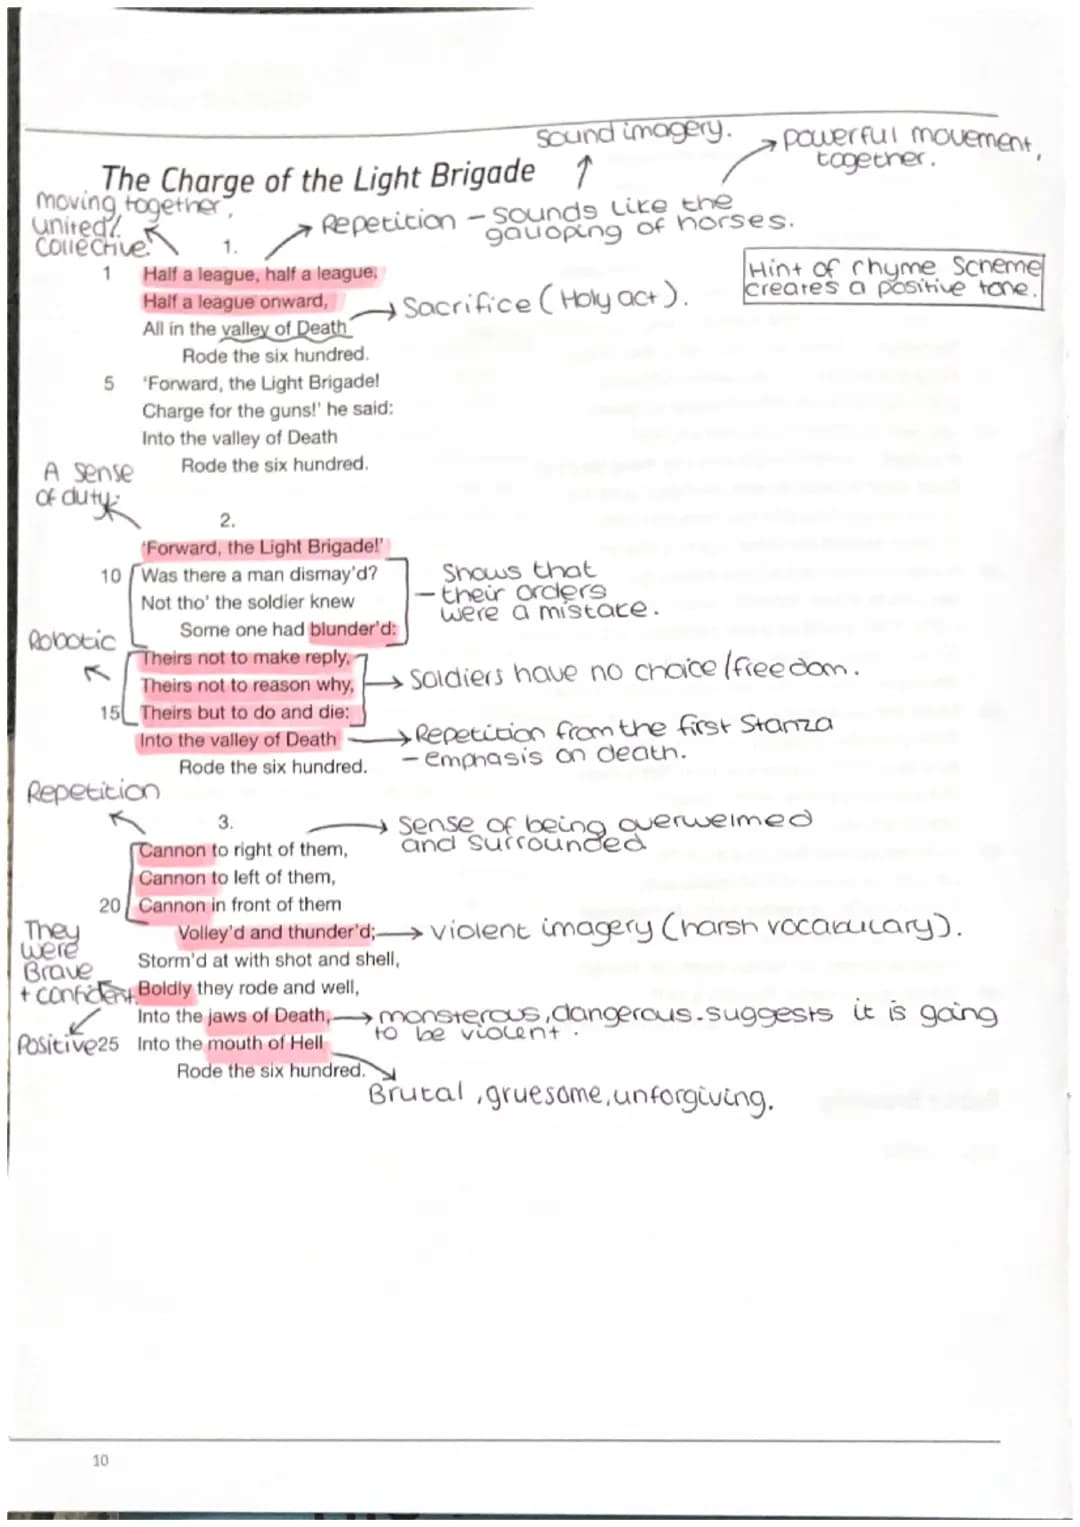 sound imagery.
powerful movement,
together.
The Charge of the Light Brigade
moving together,
united/
collective.
Repetition - sounds like the
galloping of horses.
1.
Hint of rhyme scheme
creates a positive tone.
1 Half a league, half a league,
Half a league onward,
Sacrifice (Holy act).
All in the valley of Death
Rode the six hundred.
5 'Forward, the Light Brigade!
Charge for the guns!' he said:
Into the valley of Death
Rode the six hundred.
A sense
of duty.
2.
'Forward, the Light Brigade!'
10 Was there a man dismay'd?
Not tho' the soldier knew
Some one had blunder'd:
Shows that
- their orders
were a mistake.
Robotic
Theirs not to make reply,
Theirs not to reason why,
15 Theirs but to do and die:
Soldiers have no choice/freedom.
Into the valley of Death
Rode the six hundred.
Repetition from the first Stanza
- emphasis on death.
Repetition
3.
sense of being overwelmed
and surrounded
Cannon to right of them,
Cannon to left of them,
20 Cannon in front of them
Volley'd and thunder'd;
violent imagery (harsh vocabulary).
They
were
Brave
+ confident.
Positive
Storm'd at with shot and shell,
Boldly they rode and well,
Into the jaws of Death,
monsterous, dangerous. suggests it is going
to be violent.
25 Into the mouth of Hell
Rode the six hundred.
Brutal, gruesome, unforgiving.
10